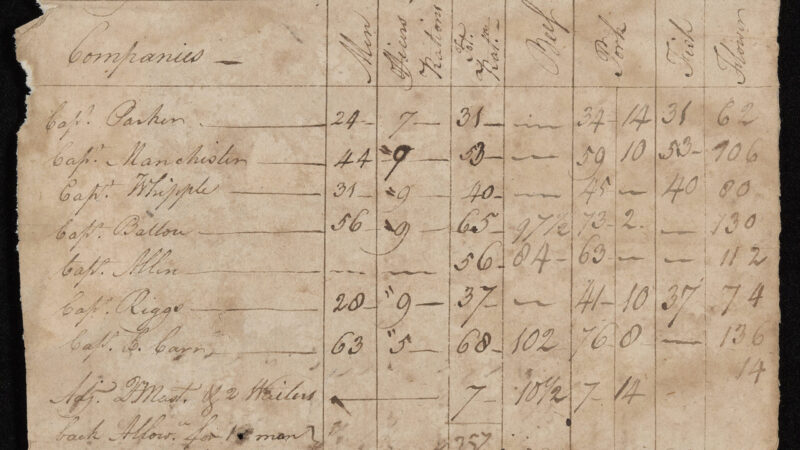 Companies — Men Officers Rations Tot. Rat.ns Beef Pork Fish Flower
Capt. Parker — 24 — 7 — 31 — — 34 - 14 31 62
Capt. Manchester — 44 - "9 — 53 — — 59 10 53 - 106
Capt. Whipple — 31 - "9 — 40 — — 45 — 40 80
Capt. Ballou — 56 "9 — 65 — 97½ 73 - 2. — 130
Capt. Allin — — — 56 - 84 - 63 — — 112
Capt. Riggs — 28 - "9 — 37 — — 41 - 10 37 74
Capt. E. Carr — 63 "5 — 68 - 102 76 8 — 136
Adj. Q Mast. & 2 Waiters — 7 - 10½ 7 - 14 — 14
back Allow.ce for 1 man
357